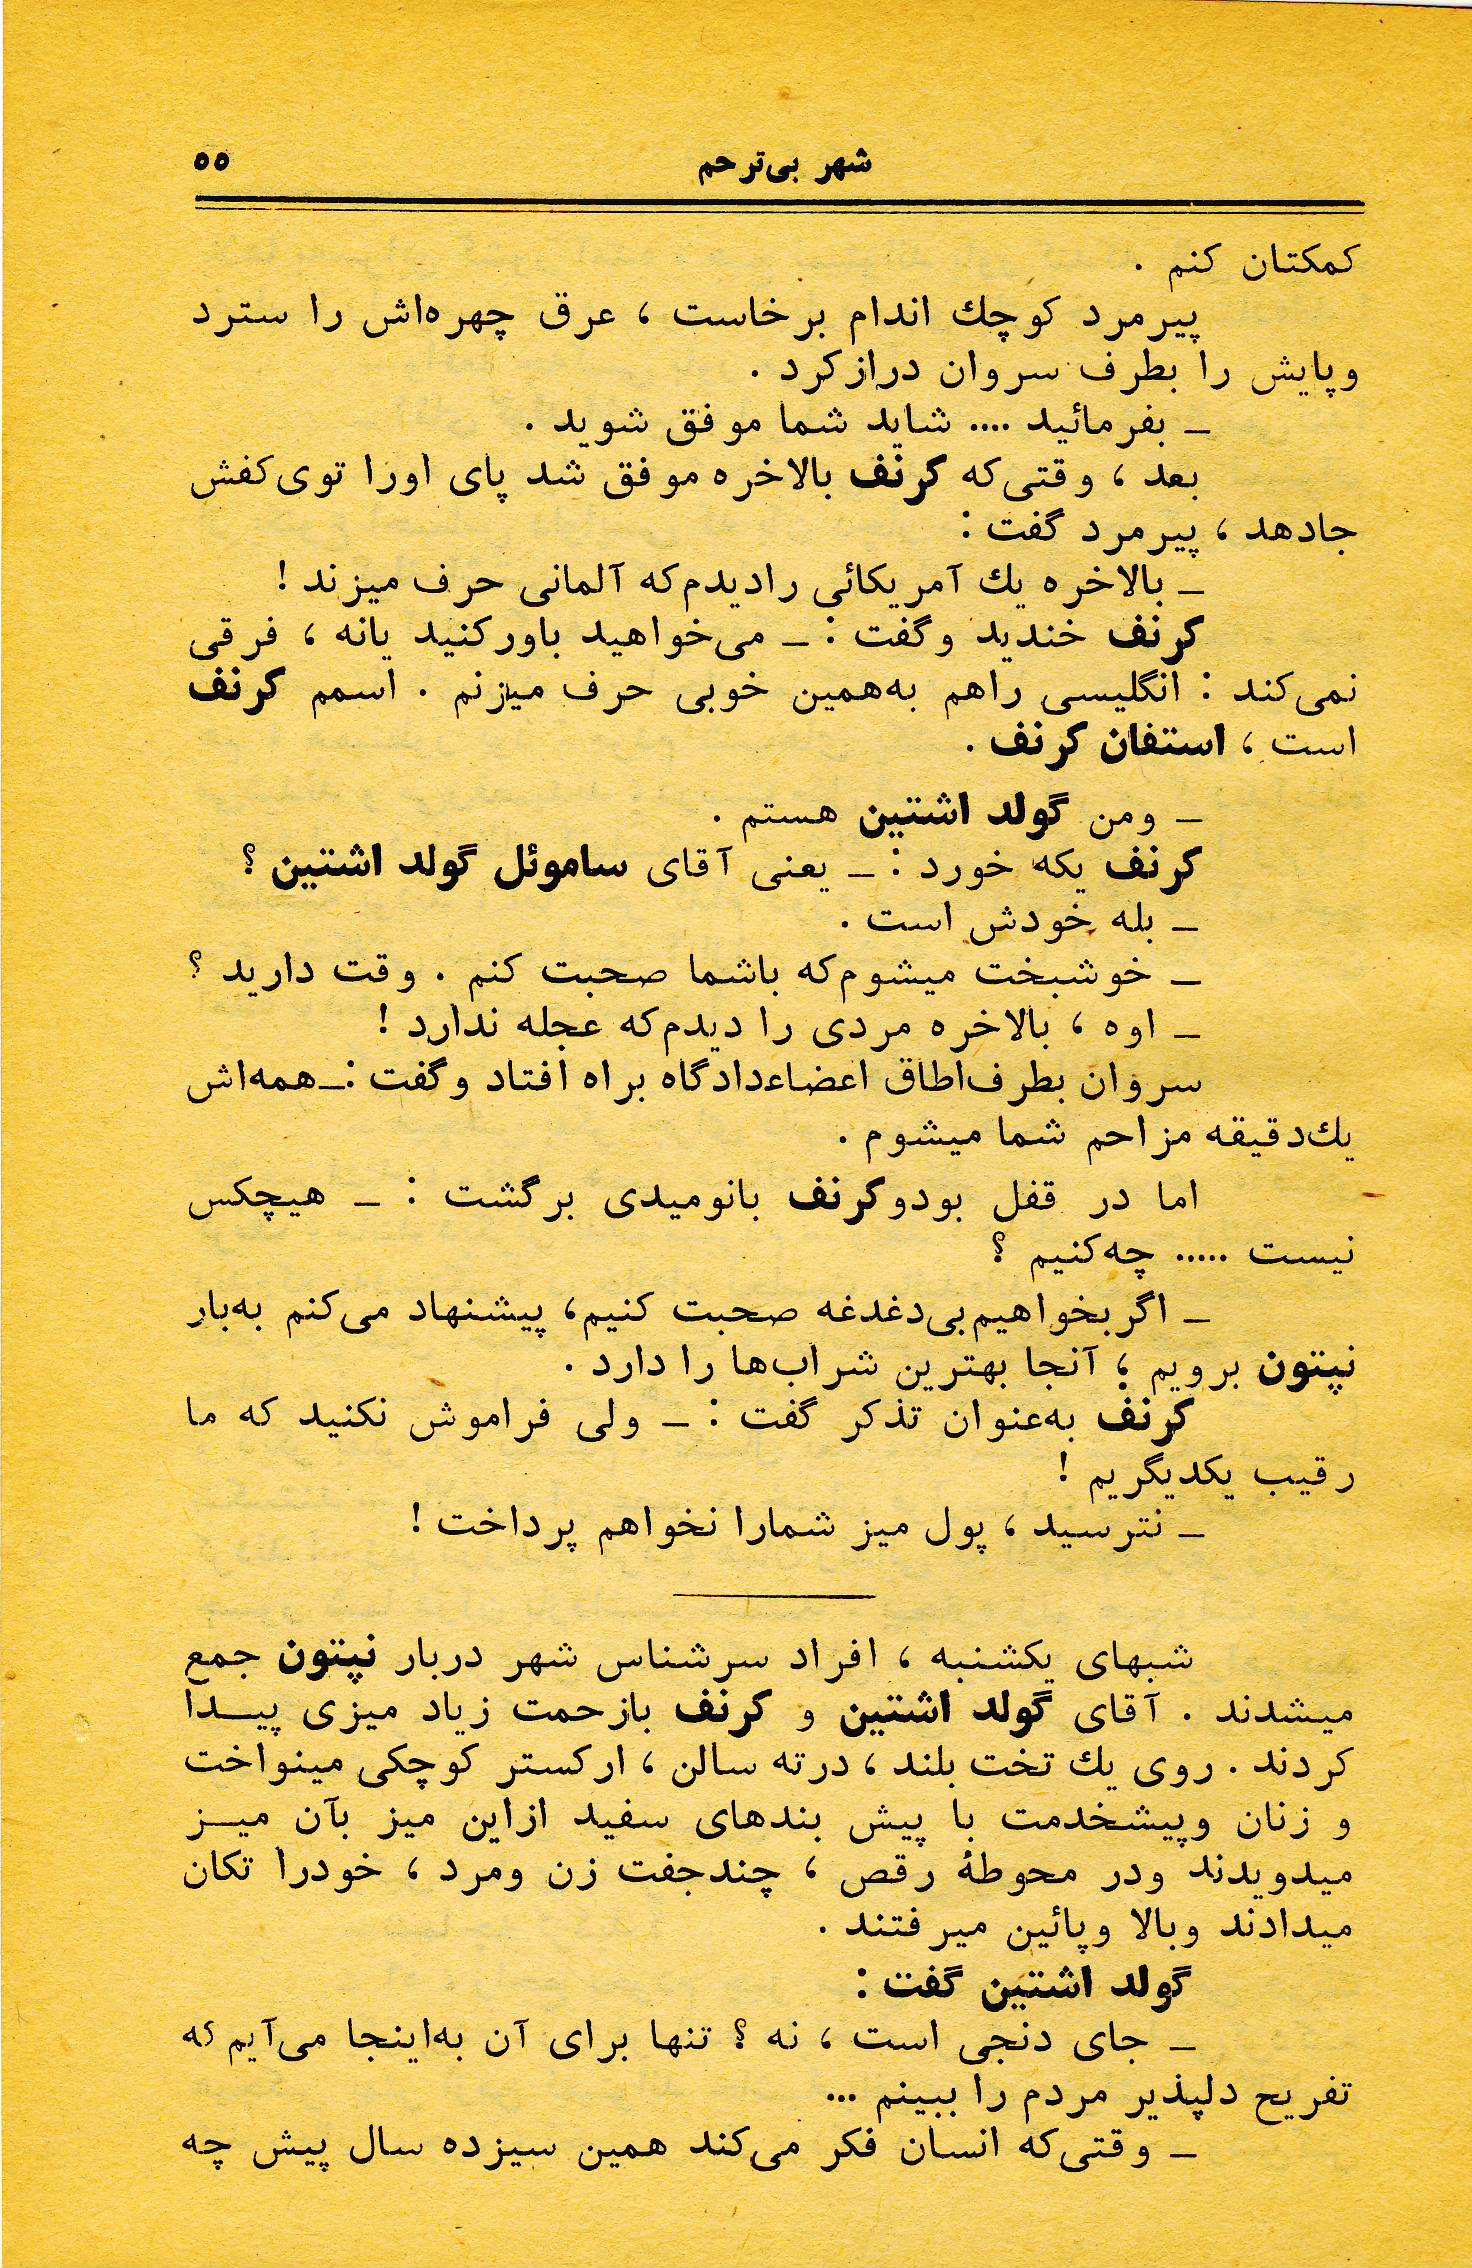 شهر بی‌ترحم ۵۵
کمکتان کنم .
پیرمرد کوچك اندام برخاست ، عرق چهره‌اش را سترد
وپایش را بطرف سروان درازکرد .
ــ بفرمائید .... شاید شما موفق شوید .
بعد ، وقتی‌که کرنف بالاخره موفق شد پای اورا توی‌کفش
جادهد ، پیرمرد گفت :
ــ بالاخره یك آمریکائی رادیدم‌که آلمانی حرف میزند !
کرنف خندید وگفت : ــ می‌خواهید باورکنید یانه ، فرقی
نمی‌کند : انگلیسی راهم به‌همین خوبی حرف میزنم . اسمم کرنف
است ، استفان کرنف .
ــ ومن گولد اشتین هستم .
کرنف یکه خورد : ــ یعنی آقای ساموئل گولد اشتین ؟
ــ بله خودش است .
ــ خوشبخت میشوم‌که باشما صحبت کنم . وقت دارید ؟
ــ اوه ، بالاخره مردی را دیدم‌که عجله ندارد !
سروان بطرف‌اطاق اعضاءدادگاه براه افتاد وگفت :ــ همه‌اش
یك‌دقیقه مزاحم شما میشوم .
اما در قفل بودوکرنف بانومیدی برگشت : ــ هیچکس
نیست ..... چه‌کنیم ؟
ــ اگربخواهیم‌بی‌دغدغه صحبت کنیم، پیشنهاد می‌کنم به‌بار
نپتون برویم ؛ آنجا بهترین شراب‌ها را دارد .
کرنف به‌عنوان تذکر گفت : ــ ولی فراموش نکنید که ما
رقیب یکدیگریم !
ــ نترسید ، پول میز شمارا نخواهم پرداخت !
شبهای یکشنبه ، افراد سرشناس شهر دربار نپتون جمع
میشدند . آقای گولد اشتین و کرنف بازحمت زیاد میزی پیــدا
کردند . روی یك تخت بلند ، درته سالن ، ارکستر کوچکی مینواخت
و زنان وپیشخدمت با پیش بندهای سفید ازاین میز بآن میــز
میدویدند ودر محوطهٔ رقص ، چندجفت زن ومرد ، خودرا تکان
میدادند وبالا وپائین میرفتند .
گولد اشتین گفت :
ــ جای دنجی است ، نه ؟ تنها برای آن به‌اینجا می‌آیم که
تفریح دلپذیر مردم را ببینم ...
ــ وقتی‌که انسان فکر می‌کند همین سیزده سال پیش چه